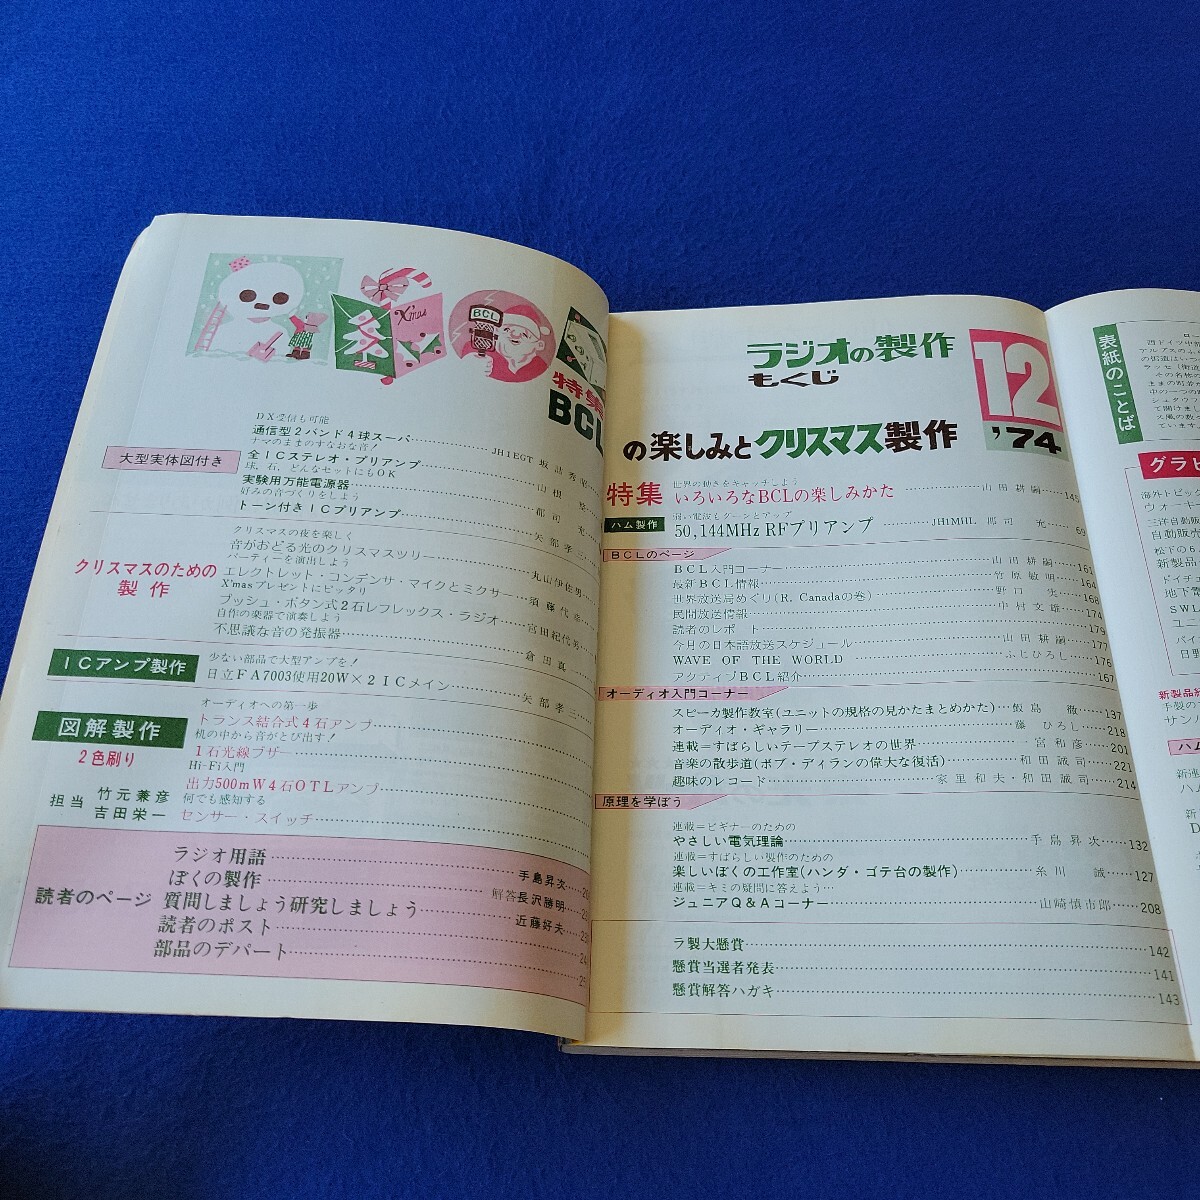 BCL
X'mas
特集
BCL
DX受信も可能
通信型2バンド4球スーパ JH1EGT 坂詰秀
大型実体図付き
ナマのままのすなおな音!
全ICステレオ・プリアンプ 山根
球、石、どんなセットにもOK
実験用万能電源器 郡司 充
好みの音づくりをしよう
トーン付きICプリアンプ 矢部孝三
クリスマスのための
製作
クリスマスの夜を楽しく
音がおどる光のクリスマスツリー 丸山伊佐男
パーティーを演出しよう
エレクトレット・コンデンサ・マイクとミクサー 須藤代幸
X'masプレゼントにピッタリ
プッシュ・ボタン式2石レフレックス・ラジオ 宮田紀代
自作の楽器で演奏しよう
不思議な音の発振器 倉田真一
ICアンプ製作
少ない部品で大型アンプを!
日立FA7003使用20W×2ICメイン 矢部孝三
図解製作
2色刷り
担当 竹元兼彦
吉田栄一
オーディオへの第一歩
トランス結合式4石アンプ
机の中から音がとび出す!
1石光線ブザー
Hi-Fi入門
出力500mW4石OTLアンプ
何でも感知する
センサー・スイッチ
読者のページ
ラジオ用語 手島昇次
ぼくの製作 解答長沢勝明
質問しましょう研究しましょう 近藤好夫
読者のポスト
部品のデパート
ラジオの製作
もくじ
12
'74
の楽しみとクリスマス製作
特集
世界の動きをキャッチしよう
いろいろなBCLの楽しみかた 山田耕嗣 145
ハム製作
弱い電波もグーンとアップ
50,144MHz RFプリアンプ JH1MHL 郡司 充 60
BCLのページ
BCL入門コーナー 山田耕嗣 161
最新BCL情報 竹原敏明 164
世界放送局めぐり(R. Canadaの巻) 野口 実 168
民間放送情報 中村文雄 174
読者のレポ 179
今月の日本語放送スケジュール 山田耕嗣 177
WAVE OF THE WORLD ふじひろし 176
アクティブBCL紹介 167
オーディオ入門コーナー
スピーカ製作教室(ユニットの規格の見かたまとめかた) 飯島 徹 137
オーディオ・ギャラリー 藤 ひろし 218
連載=すばらしいテープステレオの世界 宮和彦 201
音楽の散歩道(ボブ・ディランの偉大な復活) 和田誠司 221
趣味のレコード 家里和夫・和田誠司 214
原理を学ぼう
連載=ビギナーのための
やさしい電気理論 手島昇次 132
連載=すばらしい製作のための
楽しいぼくの工作室(ハンダ・ゴテ台の製作) 糸川 誠 127
連載=キミの疑問に答えよう…
ジュニアQ&Aコーナー 山崎慎市郎 208
ラ製大懸賞 142
懸賞当選者発表 141
懸賞解答ハガキ 143
表紙のことば
西ドイツ中
アルプスの
の街道は
ラッセ(街道
その名残の
ままの町
中の一つの
シュタウフ
て開けま
火風の数
ています。
グラビ
海外トピック
ウォーキ
三洋自動販
自動販売
松下の6
新製品
ドイチ
地下電
SWL
ユニ
バイ
日野
新製品紹
手製の
サン
ハム
新連
ハム
新
D